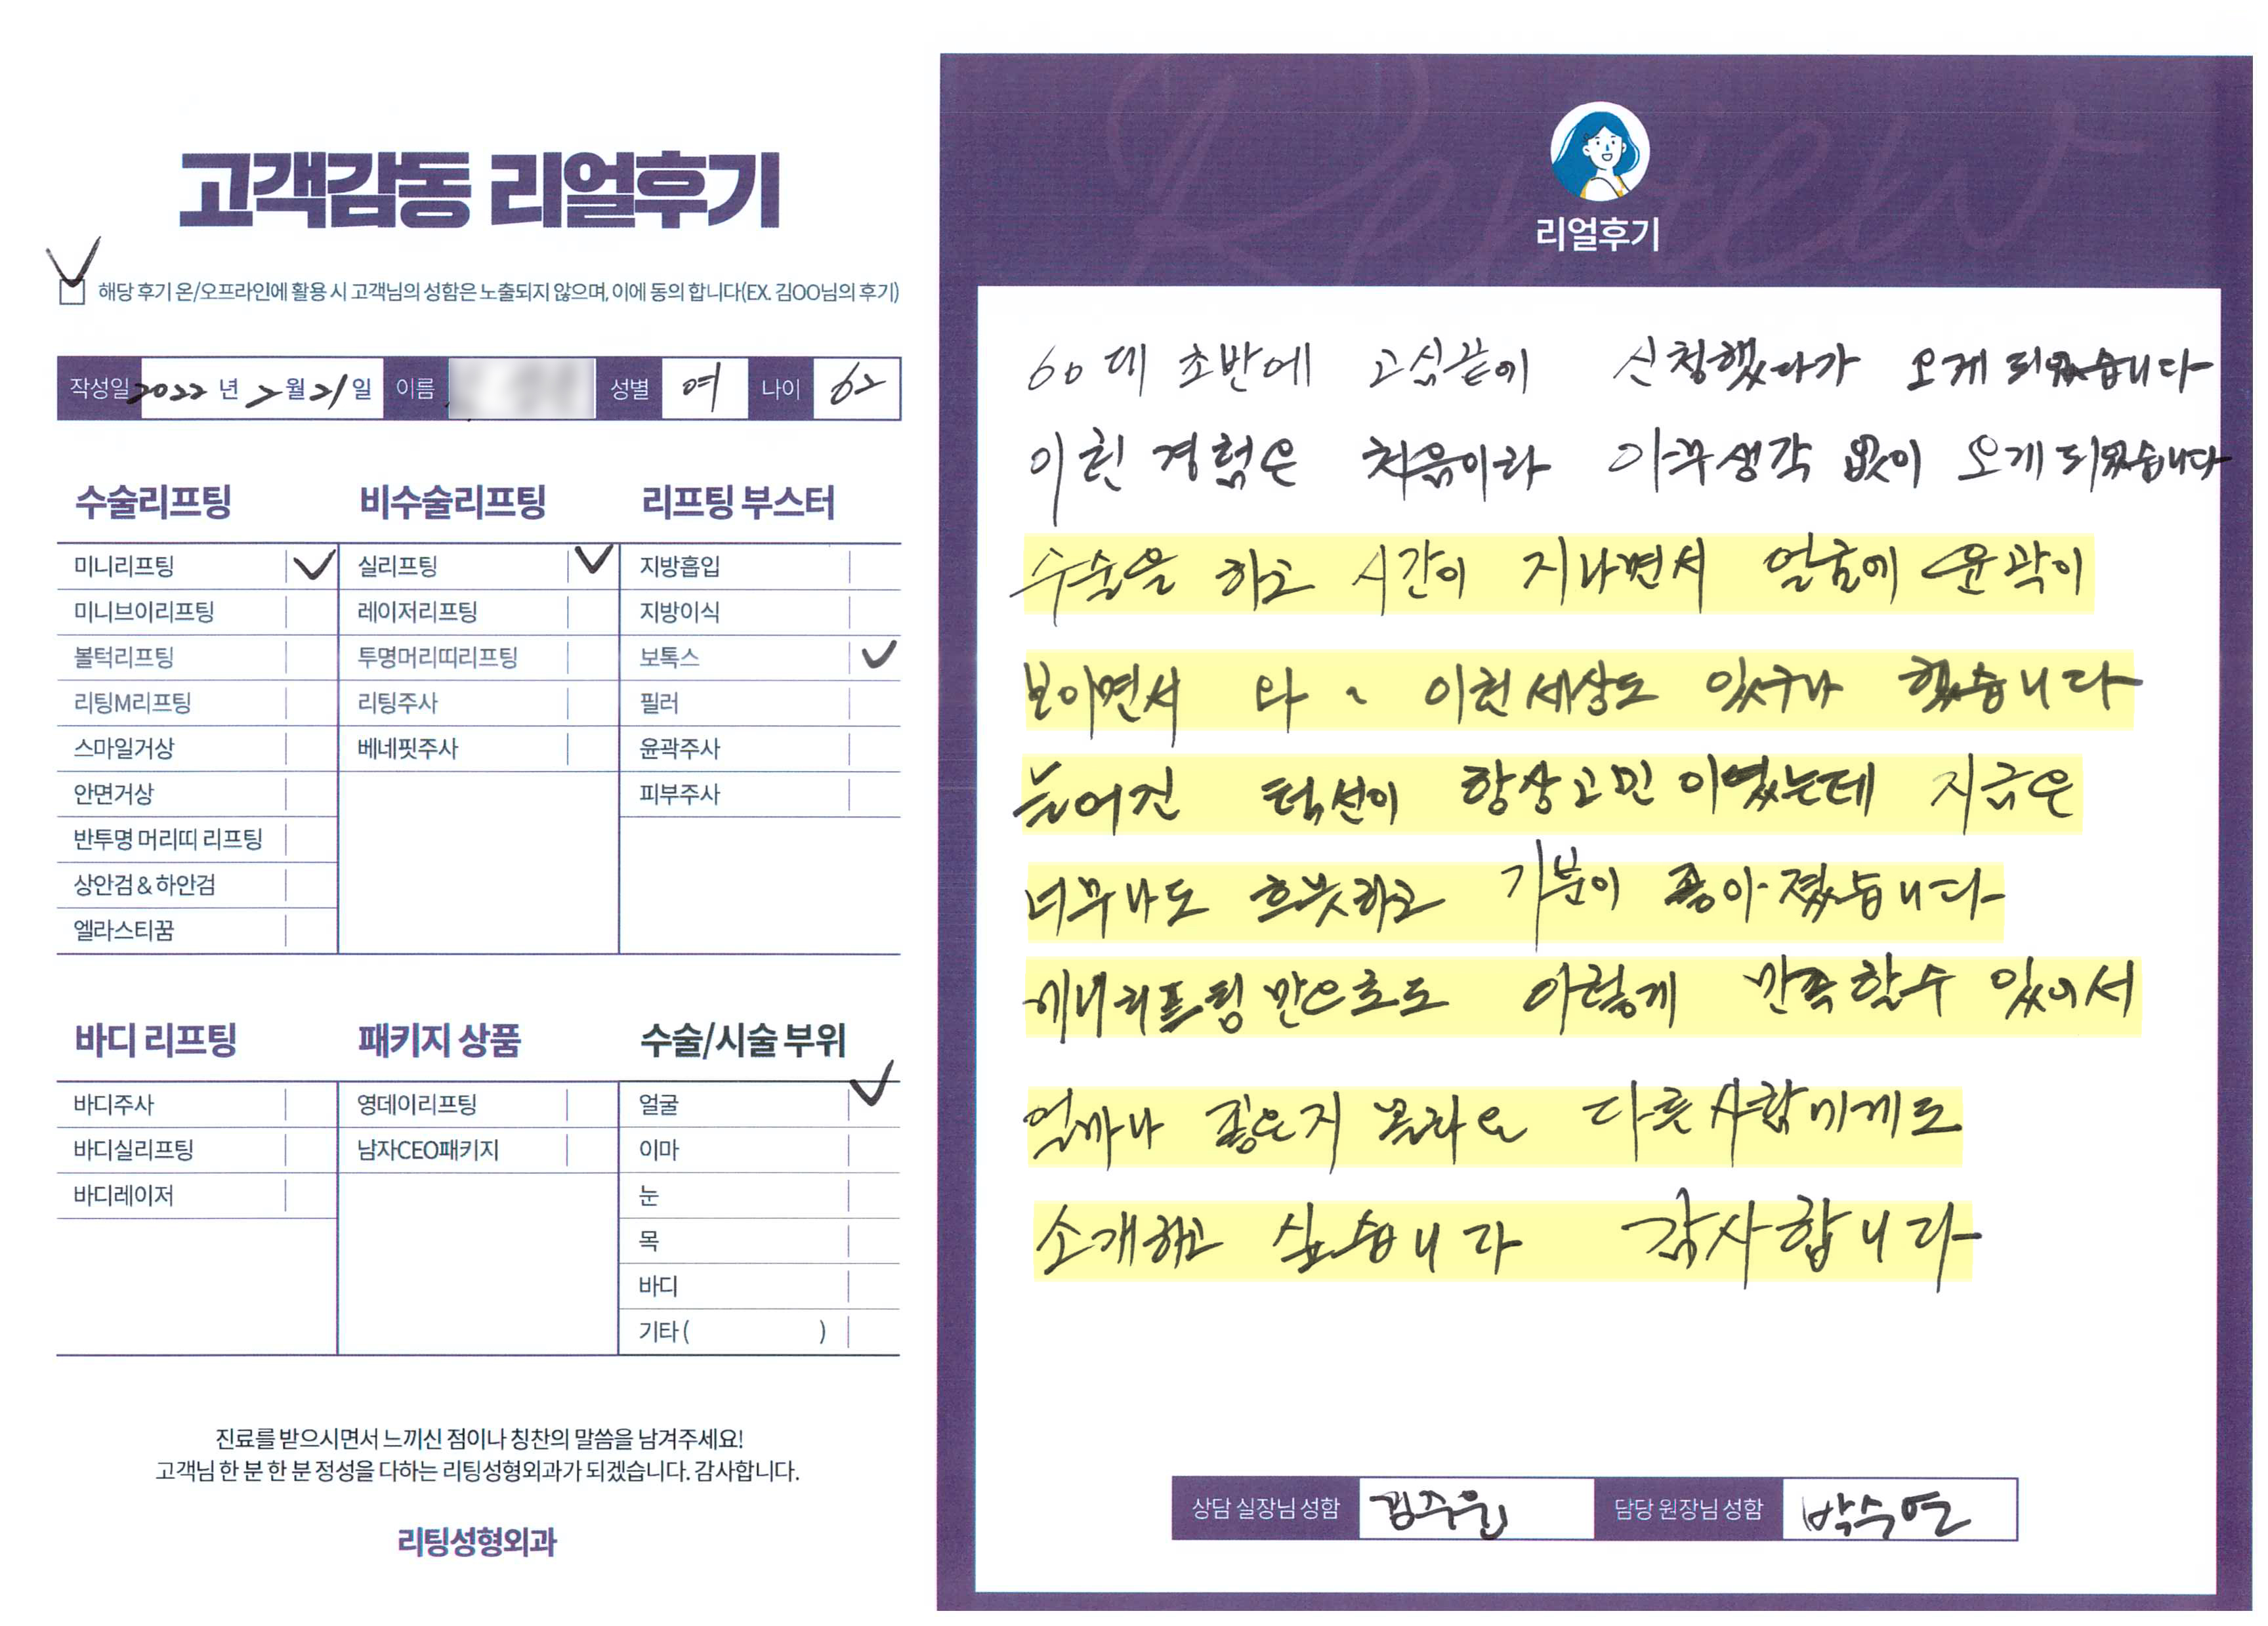 고객감동 리얼후기
해당 후기 온/오프라인에 활용 시 고객님의 성함은 노출되지 않으며, 이에 동의 합니다(EX. 김OO님의 후기)
작성일 2022 년 7 월 21 일 이름 성별 여 나이 62
수술리프팅
미니리프팅
미니브이리프팅
볼턱리프팅
리팅M리프팅
스마일거상
안면거상
반투명 머리띠 리프팅
상안검 & 하안검
엘라스티꿈
비수술리프팅
실리프팅
레이저리프팅
투명머리띠리프팅
리팅주사
베네핏주사
리프팅 부스터
지방흡입
지방이식
보톡스
필러
윤곽주사
피부주사
바디 리프팅
바디주사
바디실리프팅
바디레이저
패키지 상품
영데이리프팅
남자CEO패키지
수술/시술 부위
얼굴
이마
눈
목
바디
기타 ( )
진료를 받으시면서 느끼신 점이나 칭찬의 말씀을 남겨주세요!
고객님 한 분 한 분 정성을 다하는 리팅성형외과가 되겠습니다. 감사합니다.
리팅성형외과
Review
리얼후기
60대 초반에 고심끝에 신청했다가 오게 되었습니다
이런 경험은 처음이라 아무생각 없이 오게 되었습니다
수술을 하고 시간이 지나면서 얼굴에 윤곽이
보이면서 와 ~ 이런 세상도 있구나 했습니다
늘어진 턱선이 항상 고민 이였는데 지금은
너무나도 흐뭇하고 기분이 좋아 졌습니다
미니리프팅 만으로도 이렇게 만족 할수 있어서
얼마나 좋은지 몰라요 다른 사람에게도
소개하고 싶습니다 감사합니다
상담 실장님 성함 김주원 담당 원장님 성함 박수연